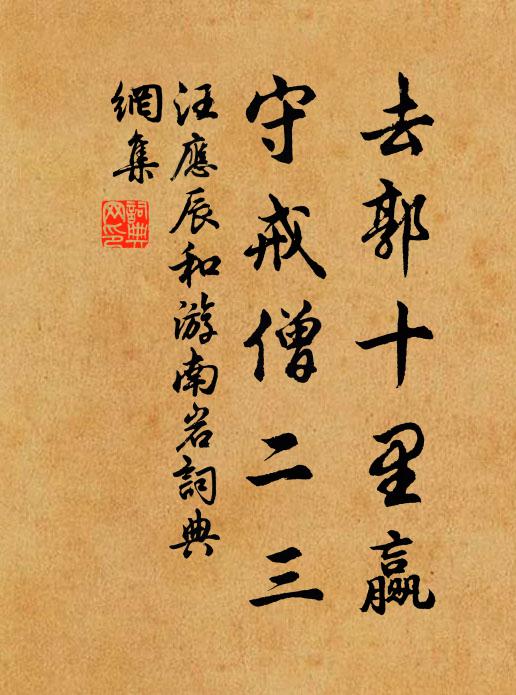 去郭十里贏
守戒僧二三
汪應辰和游南岩詞典
網集
詞典網印